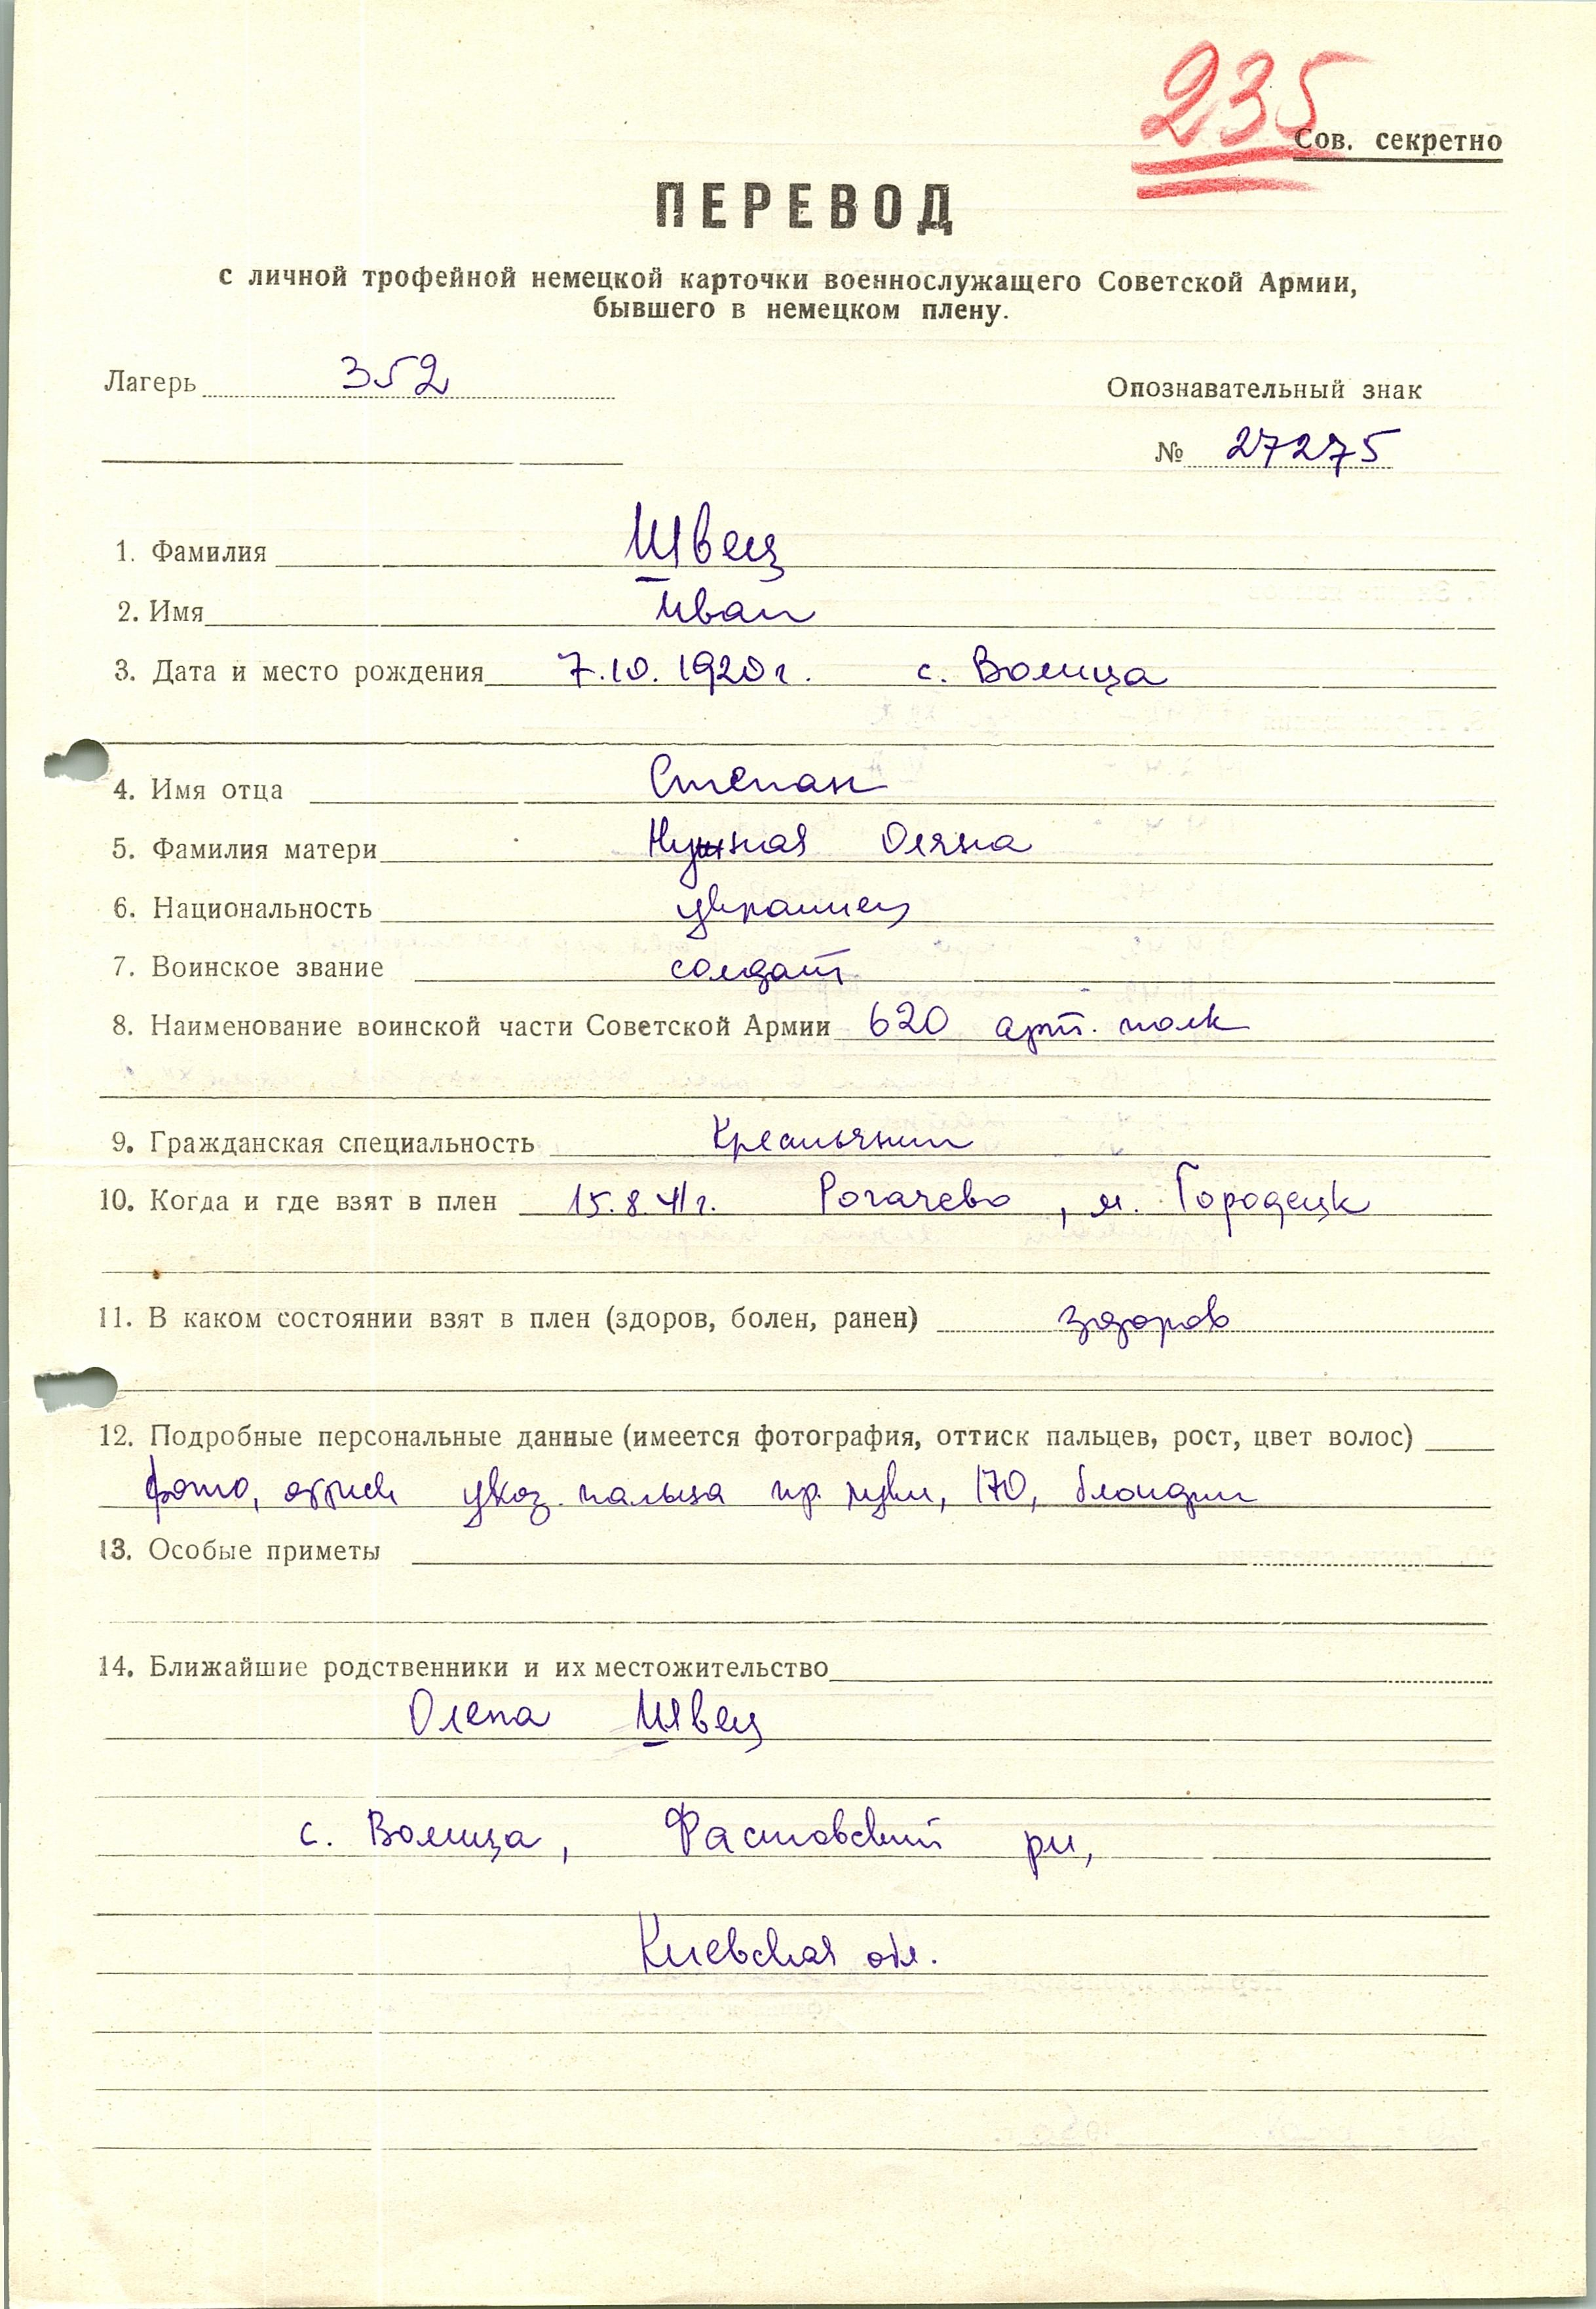 235
Сов. секретно
ПЕРЕВОД
с личной трофейной немецкой карточки военнослужащего Советской Армии,
бывшего в немецком плену.
Лагерь 352
Опознавательный знак
№ 27275
1. Фамилия Швец
2. Имя Иван
3. Дата и место рождения 7.10.1920 г. с. Волица
4. Имя отца Степан
5. Фамилия матери Нужная Оляна
6. Национальность украинец
7. Воинское звание солдат
8. Наименование воинской части Советской Армии 620 арт. полк
9. Гражданская специальность Крестьянин
10. Когда и где взят в плен 15.8.41 г. Рогачево, м. Городецк
11. В каком состоянии взят в плен (здоров, болен, ранен) здоров
12. Подробные персональные данные (имеется фотография, оттиск пальцев, рост, цвет волос)
фото, оттиск указ. пальца пр. руки, 170, блондин
13. Особые приметы
14. Ближайшие родственники и их местожительство
Олена Швец
с. Волица, Фастовский рн,
Киевская обл.